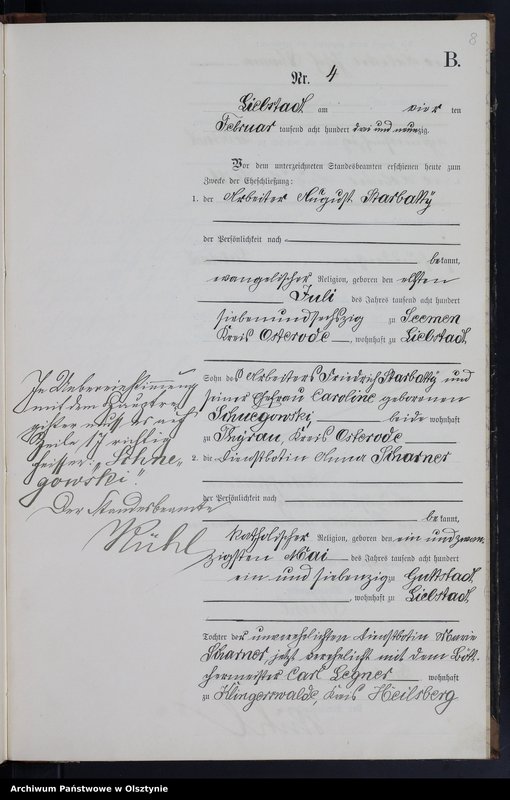 8
B.
Nr. 4
Liebstadt am vier ten
Februar tausend acht hundert drei und neunzig.
Vor dem unterzeichneten Standesbeamten erschienen heute zum
Zwecke der Eheschließung:
1. der Arbeiter August Starbatty
der Persönlichkeit nach
bekannt,
evangelischer Religion, geboren den elften
Juli des Jahres tausend acht hundert
siebenundsechszig zu Seemen
Kreis Osterode, wohnhaft zu Liebstadt,
Sohn des Arbeiters Friedrich Starbatty und
seiner Ehefrau Caroline geborenen
Schnegowski, beide wohnhaft
zu Thyrau, Kreis Osterode
2. die Dienstbotin Anna Scharner
der Persönlichkeit nach
bekannt,
katholischer Religion, geboren den ein und zwan-
zigsten Mai des Jahres tausend acht hundert
ein und siebenzig zu Guttstadt
, wohnhaft zu Liebstadt,
Tochter der unverehelichten Dienstbotin Marie
Scharner, jetzt verehelicht mit dem Bött-
chermeister Carl Legner wohnhaft
zu Klingerswalde, Kreis Heilsberg
In Uebereinstimmung
mit dem Hauptre-
gister muß es auf
Zeile 17 richtig
heißen: "Schne-
gowski".
Der Standesbeamte
Rühl
Archiwum Państwowe w Olsztynie